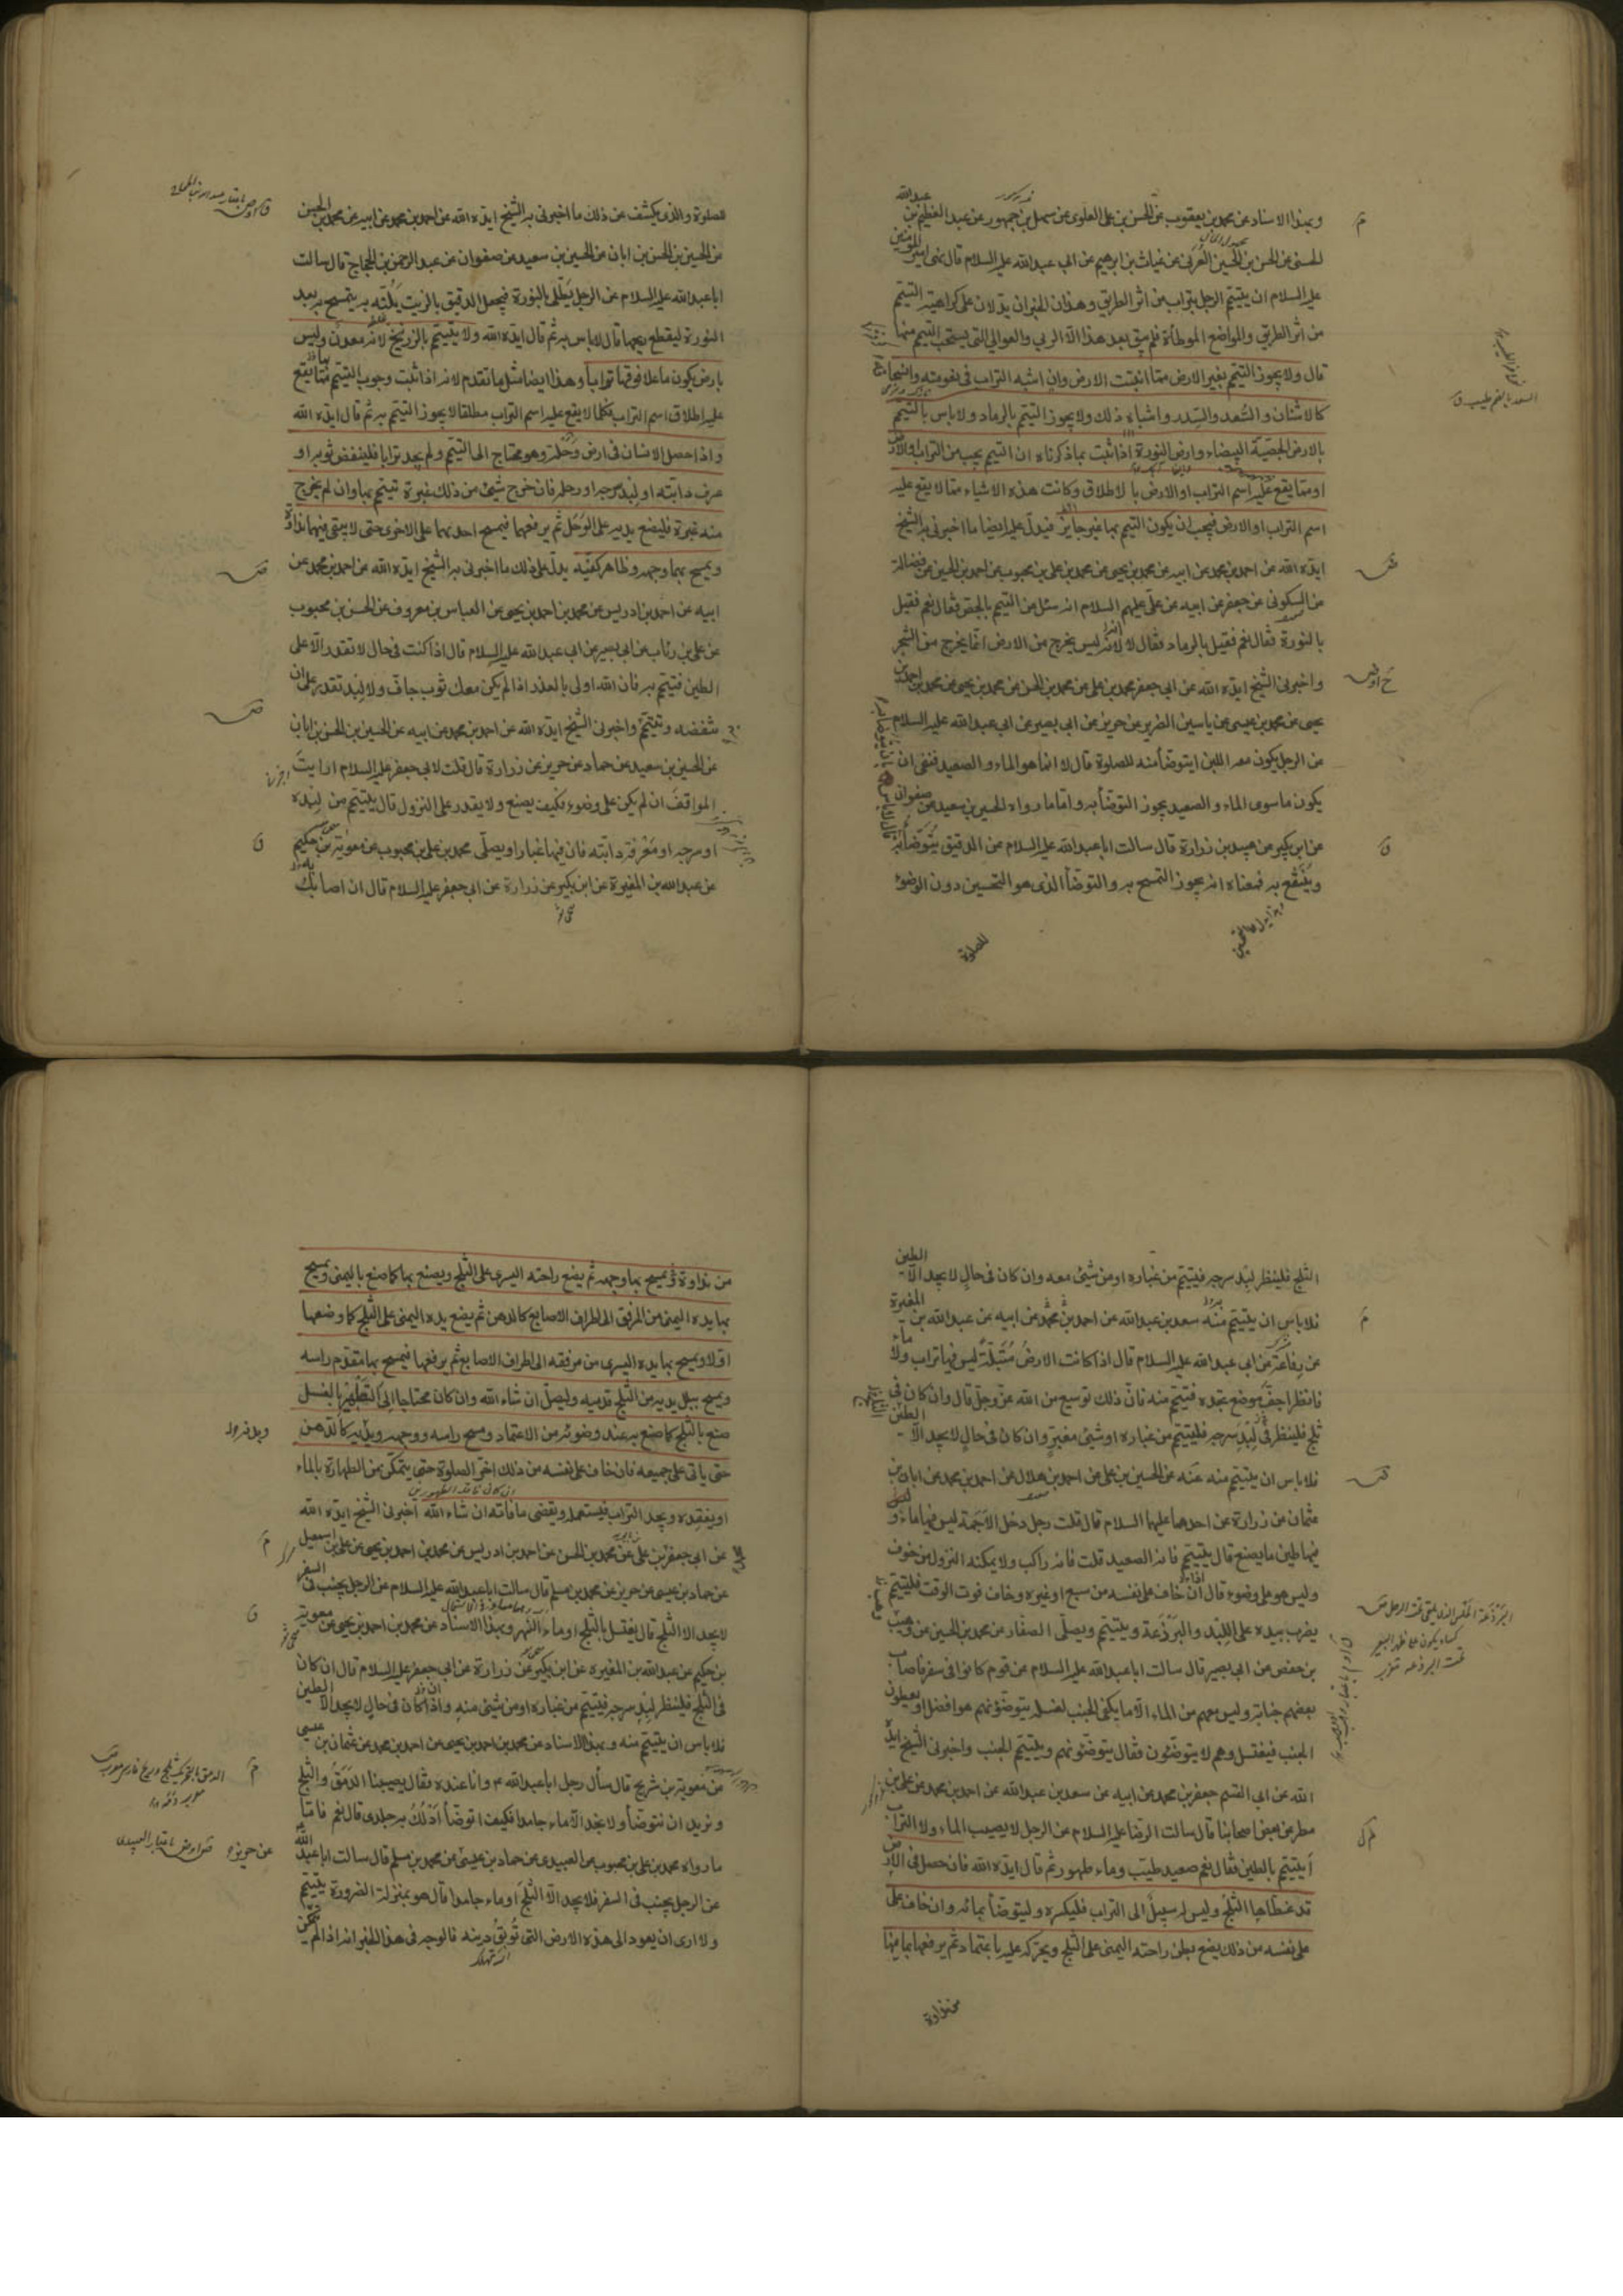 وبهذا الاسناد عن محمد بن يعقوب عن الحسن بن علي العلوي عن سهل بن جمهور عن عبد العظيم بن عبدالله
الحسني عن الحسن بن الحسين العرني عن غياث بن ابرهيم عن ابي عبدالله عليه السلام قال نهى امير المؤمنين
عليه السلام ان يتيمم الرجل بتراب من اثر الطريق وهذان الخبران يدلان على كراهية التيمم
من اثر الطريق والمواضع الموطأة فلم يبق بعد هذا الا الربي والعوالي التي يستحب التيمم منها
قال ولا يجوز التيمم بغير الارض مما انبتت الارض وان اشبه التراب في نعومته وانسحاقه
كالاشنان والسعد والسدر واشباه ذلك ولا يجوز التيمم بالرماد ولا باس بالتيمم
بالارض الجصية البيضاء وارض النورة اذا ثبت بما ذكرناه ان التيمم يجب من التراب والارض
او مما يقع عليه اسم التراب او الارض بالاطلاق وكانت هذه الاشياء مما لا يقع عليه
اسم التراب او الارض فيجب ان يكون التيمم بها غير جايز فيدل عليه ايضا ما اخبرني به الشيخ
ايده الله عن احمد بن محمد عن ابيه عن محمد بن يحيى عن محمد بن علي بن محبوب عن احمد بن الحسين عن فضالة
عن السكوني عن جعفر عن ابيه عن علي عليهم السلام انه سئل عن التيمم بالجص فقال نعم فقيل
بالنورة فقال نعم فقيل بالرماد فقال لا لانه ليس يخرج من الارض انما يخرج من الشجر
واخبرني الشيخ ايده الله عن ابي جعفر محمد بن علي عن محمد بن الحسن عن محمد بن يحيى عن محمد بن احمد بن
يحيى عن محمد بن عيسى عن ياسين الضرير عن حريز عن ابي بصير عن ابي عبدالله عليه السلام
عن الرجل يكون معه اللبن ايتوضأ منه للصلوة قال لا انما هو الماء والصعيد فنفى ان
يكون ما سوى الماء والصعيد يجوز التوضأ به واما ما رواه الحسين بن سعيد عن صفوان
عن ابن بكير عن عبيد بن زرارة قال سالت ابا عبدالله عليه السلام عن الدقيق يتوضأ به قال لا باس بان يتوضأ به
وينتفع به فمعناه انه يجوز التمسح به والتوضأ الذي هو التحسين دون الوضوء
للصلوة
للصلوة والذي يكشف عن ذلك ما اخبرني به الشيخ ايده الله عن احمد بن محمد عن ابيه عن محمد بن الحسن
عن الحسين بن الحسن بن ابان عن الحسين بن سعيد عن صفوان عن عبد الرحمن بن الحجاج قال سالت
ابا عبدالله عليه السلام عن الرجل يطلى بالنورة فيجعل الدقيق بالزيت يلته به يتمسح به بعد
النورة ليقطع ريحها قال لا باس به ثم قال ايده الله ولا يتيمم بالزرنيخ لانه معدن وليس
بارض يكون ما علا فوقها ترابا وهذا ايضا مثل ما تقدم لانه اذا ثبت وجوب التيمم مما يقع
عليه اطلاق اسم التراب فكلما لا يقع عليه اسم التراب مطلقا لا يجوز التيمم به ثم قال ايده الله
واذا حصل الانسان في ارض وحلة وهو محتاج الى التيمم ولم يجد ترابا فلينفض ثوبه او
عرف دابته او لبد سرجه او رحله فان خرج شيئ من ذلك غبرة تيمم بها وان لم يخرج
منه غبرة فليضع يديه على الوحل ثم يرفعهما فيمسح احديهما على الاخرى حتى لا يبقى فيهما نداوة
ويمسح بهما وجهه وظاهر كفيه يدل على ذلك ما اخبرني به الشيخ ايده الله عن احمد بن محمد عن
ابيه عن احمد بن ادريس عن محمد بن احمد بن يحيى عن العباس بن معروف عن الحسن بن محبوب
عن علي بن رئاب عن ابي بصير عن ابي عبدالله عليه السلام قال اذا كنت في حال لا تقدر الا على
الطين فتيمم به فان الله اولى بالعذر اذا لم يكن معك ثوب جاف ولا لبد تقدر على ان
تنفضه وتتيمم واخبرني الشيخ ايده الله عن احمد بن محمد عن ابيه عن الحسين بن الحسن بن ابان
عن الحسين بن سعيد عن حماد عن حريز عن زرارة قال قلت لابي جعفر عليه السلام ارايت
المواقف ان لم يكن على وضوء كيف يصنع ولا يقدر على النزول قال يتيمم من لبده
او سرجه او معرفة دابته فان فيها غبارا ويصلي محمد بن علي بن محبوب عن معوية بن حكيم
عن عبدالله بن المغيرة عن ابن بكير عن زرارة عن ابي جعفر عليه السلام قال ان اصابك
الثلج فلينظر لبد سرجه فيتيمم من غباره او من شيئ معه وان كان في حال لا يجد الا الطين
فلا باس ان يتيمم منه سعد بن عبدالله عن احمد بن محمد عن ابيه عن عبدالله بن المغيرة
عن رفاعة عن ابي عبدالله عليه السلام قال اذا كانت الارض مبتلة ليس فيها تراب ولا ماء
فانظر اجف موضع تجده فتيمم منه فان ذلك توسيع من الله عز وجل قال وان كان في
ثلج فلينظر في لبد سرجه فليتيمم من غباره او شيئ مغبر وان كان في حال لا يجد الا الطين
فلا باس ان يتيمم منه عنه عن الحسين بن علي عن احمد بن هلال عن احمد بن محمد عن ابان بن
عثمان عن زرارة عن احدهما عليهما السلام قال قلت رجل دخل الاجمة ليس فيها ماء و
فيها طين ما يصنع قال يتيمم فانه الصعيد قلت فانه راكب ولا يمكنه النزول من خوف
وليس هو على وضوء قال ان خاف على نفسه من سبع او غيره وخاف فوت الوقت فليتيمم
يضرب بيده على اللبد والبرذعة ويتيمم ويصلي الصفار عن محمد بن الحسين عن وهيب
بن حفص عن ابي بصير قال سالت ابا عبدالله عليه السلام عن قوم كانوا في سفر فاصاب
بعضهم جنابة وليس معهم من الماء الا ما يكفي الجنب لغسله يتوضؤنهم هو افضل او يعطون
الجنب فيغتسل وهم لا يتوضئون فقال يتوضئونهم ويتيمم الجنب واخبرني الشيخ ايده
الله عن ابي القسم جعفر بن محمد عن ابيه عن سعد بن عبدالله عن احمد بن محمد عن علي بن
مطر عن بعض اصحابنا قال سالت الرضا عليه السلام عن الرجل لا يصيب الماء ولا التراب
أيتيمم بالطين فقال نعم صعيد طيب وماء طهور ثم قال ايده الله فان حصل في الارض
قد غطاها الثلج وليس له سبيل الى التراب فليكسره وليتوضأ بمائه وان خاف على
على نفسه من ذلك يضع بطن راحته اليمنى على الثلج ويحركه عليه باعتماد ثم يرفعها بما فيها
من نداوة
من نداوة فيمسح بها وجهه ثم يضع راحته اليسرى على الثلج ويصنع بها كما صنع باليمنى ويمسح
بها يده اليمنى من المرفق الى اطراف الاصابع كالدهن ثم يضع يده اليمنى على الثلج كما وضعها
اولا ويمسح بها يده اليسرى من مرفقه الى اطراف الاصابع ثم يرفعها فيمسح بها مقدم راسه
ويمسح ببلل يديه من الثلج قدميه وليصل ان شاء الله وان كان محتاجا الى التطهير بالغسل
صنع بالثلج كما صنع به عند وضوئه من الاعتماد ومسح راسه ووجهه ويديه كالدهن
حتى ياتي على جميعه فان خاف على نفسه من ذلك اخر الصلوة حتى يتمكن من الطهارة بالماء
او يفقده ويجد التراب فيستعمله ويقضي ما فاته ان شاء الله اخبرني الشيخ ايده الله
عن ابي جعفر بن علي عن محمد بن الحسن عن احمد بن ادريس عن محمد بن احمد بن يحيى عن علي بن اسمعيل
عن حماد بن عيسى عن حريز عن محمد بن مسلم قال سالت ابا عبدالله عليه السلام عن الرجل يجنب في السفر
لا يجد الا الثلج قال يغتسل بالثلج او ماء النهر وبهذا الاسناد عن محمد بن احمد بن يحيى عن معوية
بن حكيم عن عبدالله بن المغيرة عن ابن بكير عن زرارة عن ابي جعفر عليه السلام قال ان كان
في الثلج فلينظر لبد سرجه فيتيمم من غباره او من شيئ منه واذا كان في حال لا يجد الا الطين
فلا باس ان يتيمم منه وبهذا الاسناد عن محمد بن احمد بن يحيى عن احمد بن محمد عن عثمان بن عيسى
عن معوية بن شريح قال سأل رجل ابا عبدالله ع وانا عنده فقال يصيبنا الدمق والثلج
ونريد ان نتوضأ ولا نجد الا ماء جامدا فكيف اتوضأ ادلك به جلدي قال نعم فاما
ما رواه محمد بن علي بن محبوب عن العبيدي عن حماد بن عيسى عن محمد بن مسلم قال سالت ابا عبدالله
عن الرجل يجنب في السفر فلا يجد الا الثلج او ماء جامدا قال هو بمنزلة الضرورة يتيمم
ولا ارى ان يعود الى هذه الارض التي توبق دينه فالوجه في هذا الخبر انه اذا لم يتمكن